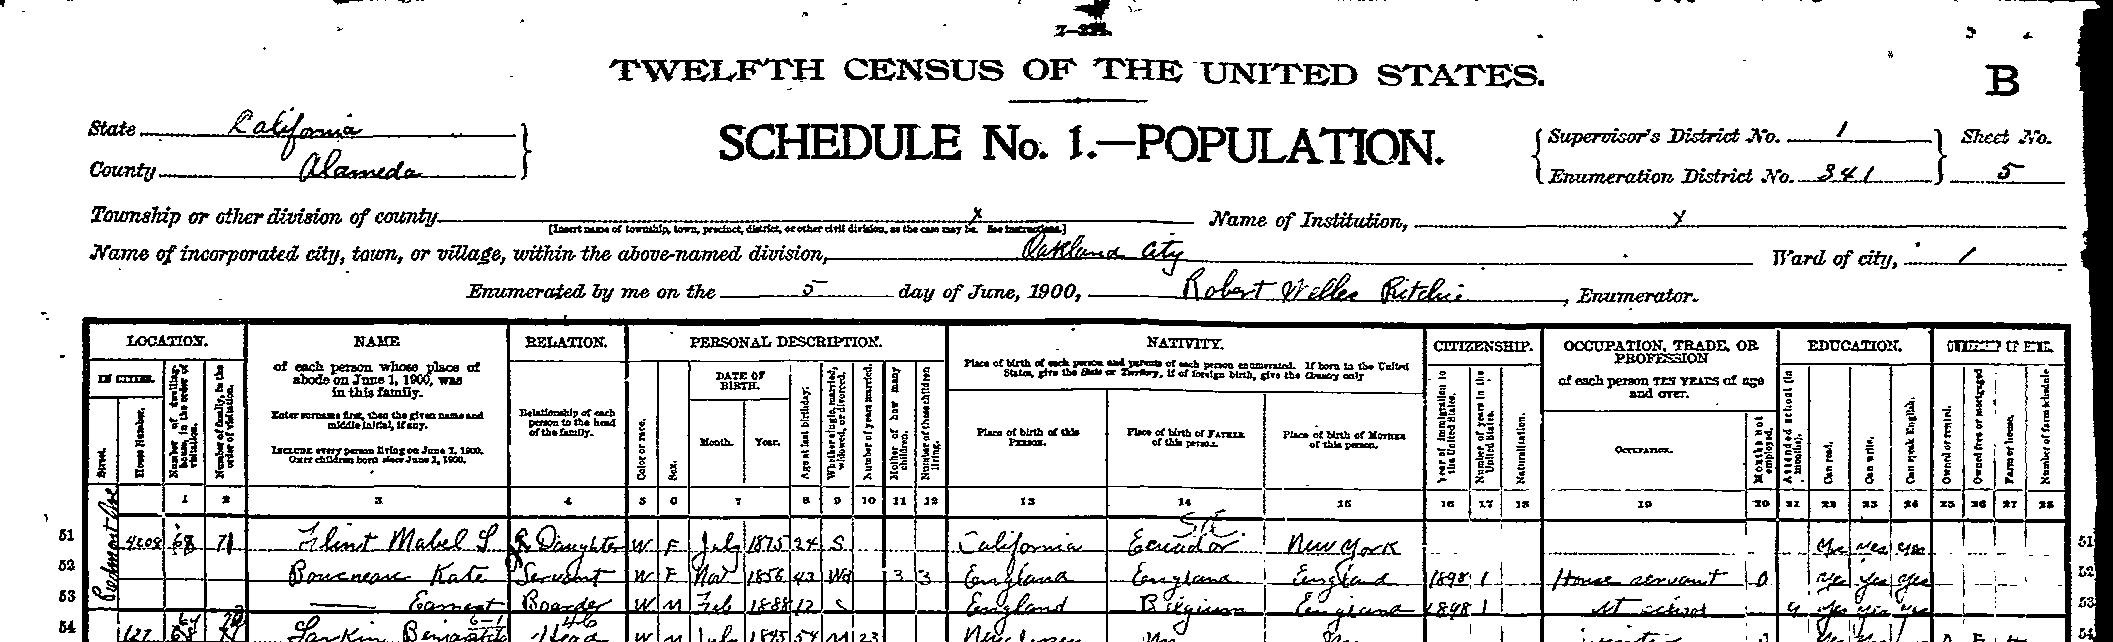 TWELFTH CENSUS OF THE UNITED STATES.
B
State California
SCHEDULE No. 1.—POPULATION.
Supervisor's District No. 1
Sheet No.
County Alameda
Enumeration District No. 341
5
Township or other division of county x
Name of Institution, x
[Insert name of township, town, precinct, district, or other civil division, as the case may be. See instructions.]
Name of incorporated city, town, or village, within the above-named division, Oakland City
Ward of city, 1
Enumerated by me on the 5 day of June, 1900, Robert Welles Ritchie, Enumerator.
LOCATION. NAME RELATION. PERSONAL DESCRIPTION. NATIVITY. CITIZENSHIP. OCCUPATION, TRADE, OR PROFESSION EDUCATION.
IN CITIES.
Street.
House Number.
Number of dwelling-house, in the order of visitation.
Number of family, in the order of visitation.
of each person whose place of abode on June 1, 1900, was in this family.
Enter surname first, then the given name and middle initial, if any.
INCLUDE every person living on June 1, 1900.
OMIT children born since June 1, 1900.
Relationship of each person to the head of the family.
Color or race.
Sex.
DATE OF BIRTH.
Month. Year.
Age at last birthday.
Whether single, married, widowed, or divorced.
Number of years married.
Mother of how many children.
Number of these children living.
Place of birth of each person and parents of each person enumerated. If born in the United States, give the State or Territory; if of foreign birth, give the Country only
Place of birth of this PERSON.
Place of birth of FATHER of this person.
Place of birth of MOTHER of this person.
Year of immigration to the United States.
Number of years in the United States.
Naturalization.
of each person TEN YEARS of age and over.
OCCUPATION.
Months not employed.
Attended school (in months).
Can read.
Can write.
Can speak English.
Owned or rented.
Owned free or mortgaged
Farm or house.
Number of farm schedule.
1 2 3 4 5 6 7 8 9 10 11 12 13 14 15 16 17 18 19 20 21 22 23 24 25 26 27 28
Piedmont Ave
51 4208 68 71 Flint Mabel S Daughter W F July 1875 24 S California Ecuador New York yes yes yes 51
52 Boucneau Kate Servant W F Nov 1856 43 Wd 3 3 England England England 1898 1 House servant 0 yes yes yes 52
53 —— Earnest Boarder W M Feb 1888 12 S England Belgium England 1898 1 at school 9 yes yes yes 53
54 127 Larkin Head W M July 1845 54 M 23 New Jersey 54